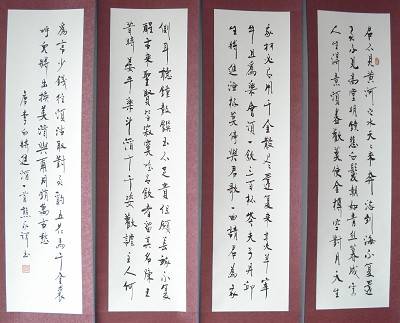 君不見黃河之水天上來奔流到海不復還
君不見高堂明鏡悲白髮朝如青絲暮成雪
人生得意須盡歡莫使金樽空對月天生
我材必有用千金散盡還復來烹羊宰
牛且為樂會須一飲三百杯岑夫子丹邱
生將進酒杯莫停與君歌一曲請君為我
傾耳聽鐘鼓饌玉不足貴但願長醉不復
醒古來聖賢皆寂寞惟有飲者留其名陳王
昔時宴平樂斗酒十千恣歡謔主人何
為言少錢徑須沽取對君酌五花馬千金裘
呼兒將出換美酒與爾同銷萬古愁
唐李白將進酒一首